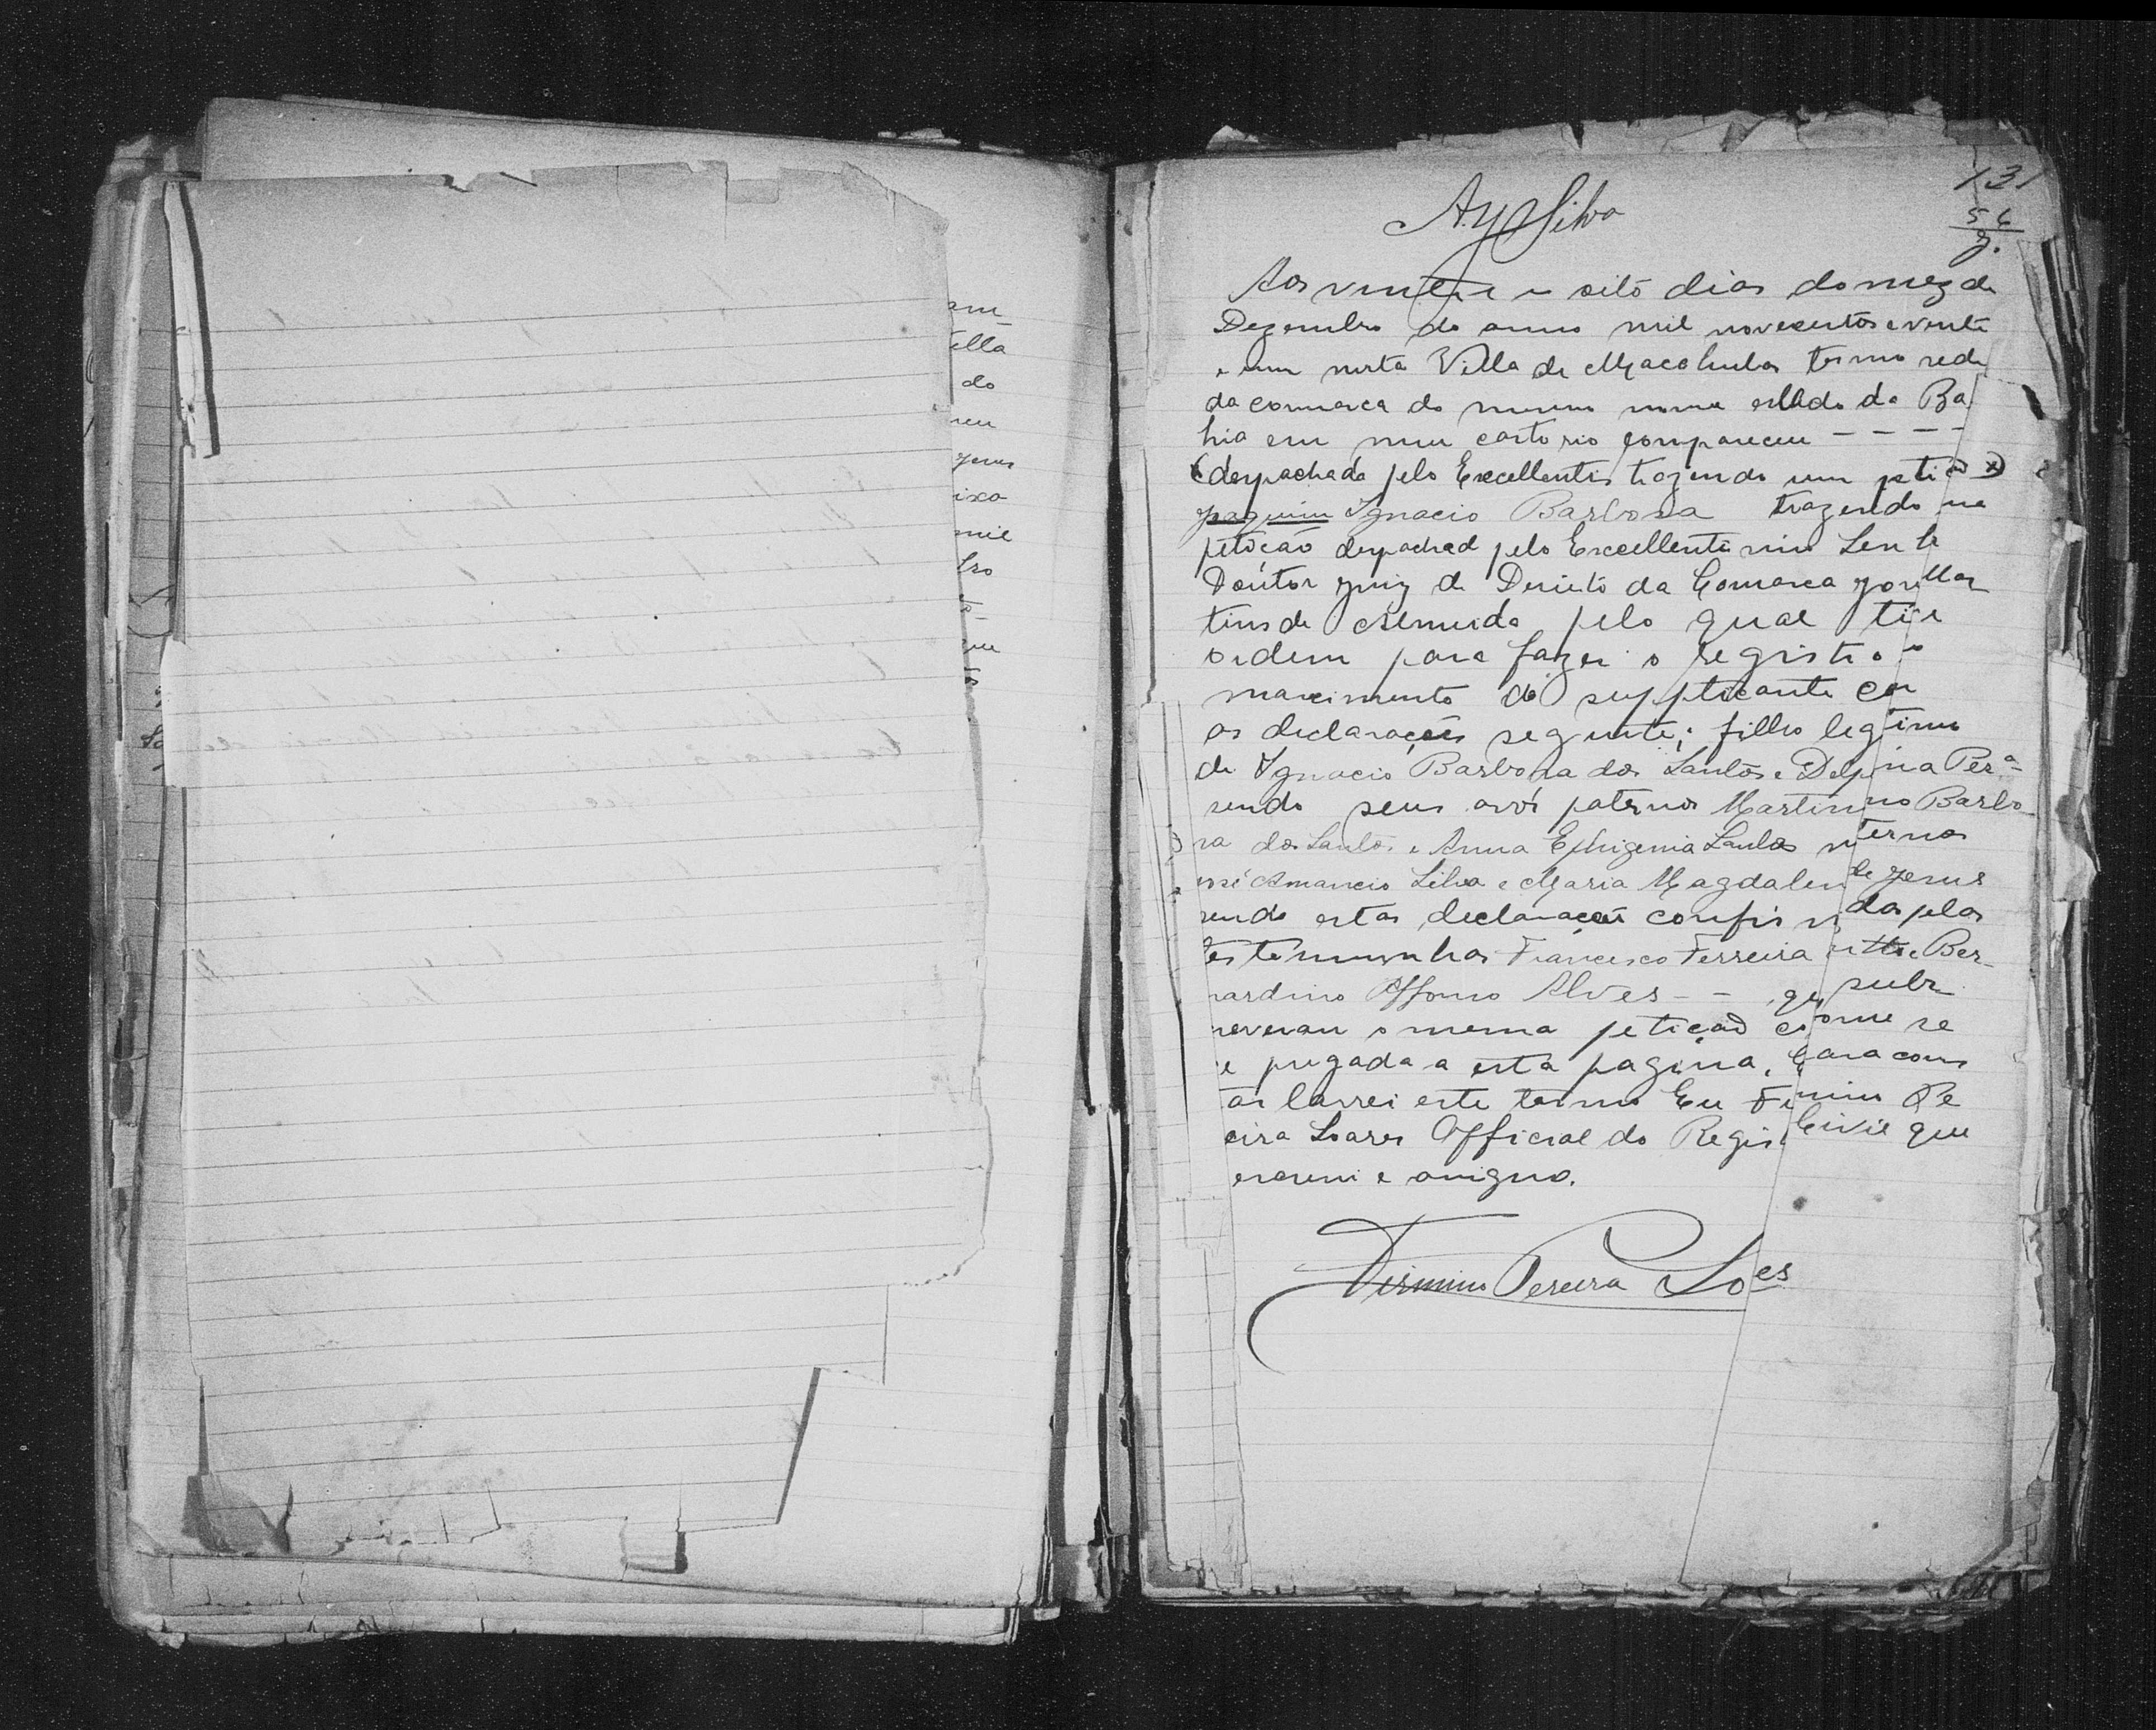 em
ella
do
reu
yeus
ixa
mil
tro
to
que
131
56
A. Y. Silva
Aos vinte e oito dias do mez de
Dezembro do anno mil novecentos e vinte
e um nesta Villa de Macahubas termo sede
da comarca do mesmo nome estado da Ba
hia em meu cartorio compareceu - - - -
(despachada pelo Excellentis trazendo um peti
Joaquim Ignacio Barbosa trazendo
petição despachad pelo Excellentissimo Senh
Doutor Juiz de Direito da Comarca
tins de Almeida pelo qual tive
ordem para fazer o registro
nascimento do supplicante com
as declarações seguinte; filho legitimo
de Ignacio Barbosa dos Santos e Delfina Perª
sendo seus avós paternos Martinno Barbo
sa dos Santos e Anna Ephigenia Santos ternos
José Amancio Silva e Maria Magdalen de Jesus
sendo estas declaração confir das pelas
testemunhas Francisco Ferreira e Ber-
nardino Affonso Alves - - que subs
creveram a mesma petição
e pregada a esta pagina, E para cons
tar lavrei este termo Eu Firmino Pe
reira Soares Official do Regis Civil que
escrevi e assigno.
Firmino Pereira Soes